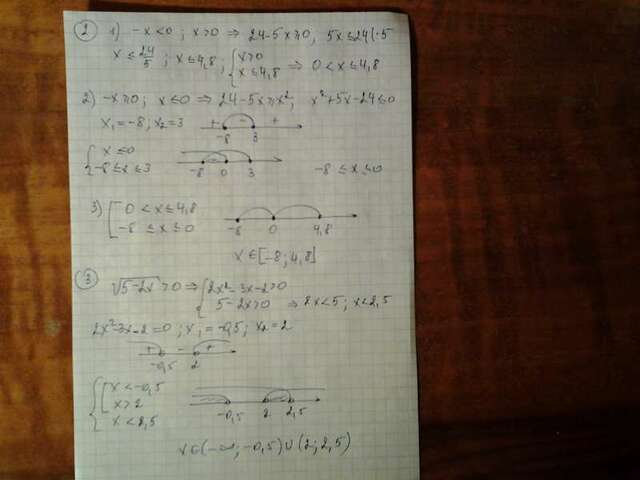 2 1) -x<0; x>0 ⇒ 24-5x≥0; 5x≤24 |:5
x ≤ 24/5; x≤4,8; { x>0 x≤4,8 ⇒ 0<x≤4,8
2) -x≥0; x≤0 ⇒ 24-5x≥x²; x²+5x-24≤0
x₁=-8; x₂=3 + - + -8 3
{ x≤0 -8≤x≤3 -8 0 3 -8≤x≤0
3) [ 0<x≤4,8 -8≤x≤0 -8 0 4,8
x∈[-8;4,8]
3 √5-2x>0 ⇒ { 2x²-3x-2>0
5-2x>0 ⇒ 2x<5; x<2,5
2x²-3x-2=0; x₁=-0,5; x₂=2
+ - +
-0,5 2
{ [ x<-0,5
x>2 -0,5 2 2,5
x<2,5
x∈(-∞;-0,5)∪(2;2,5)